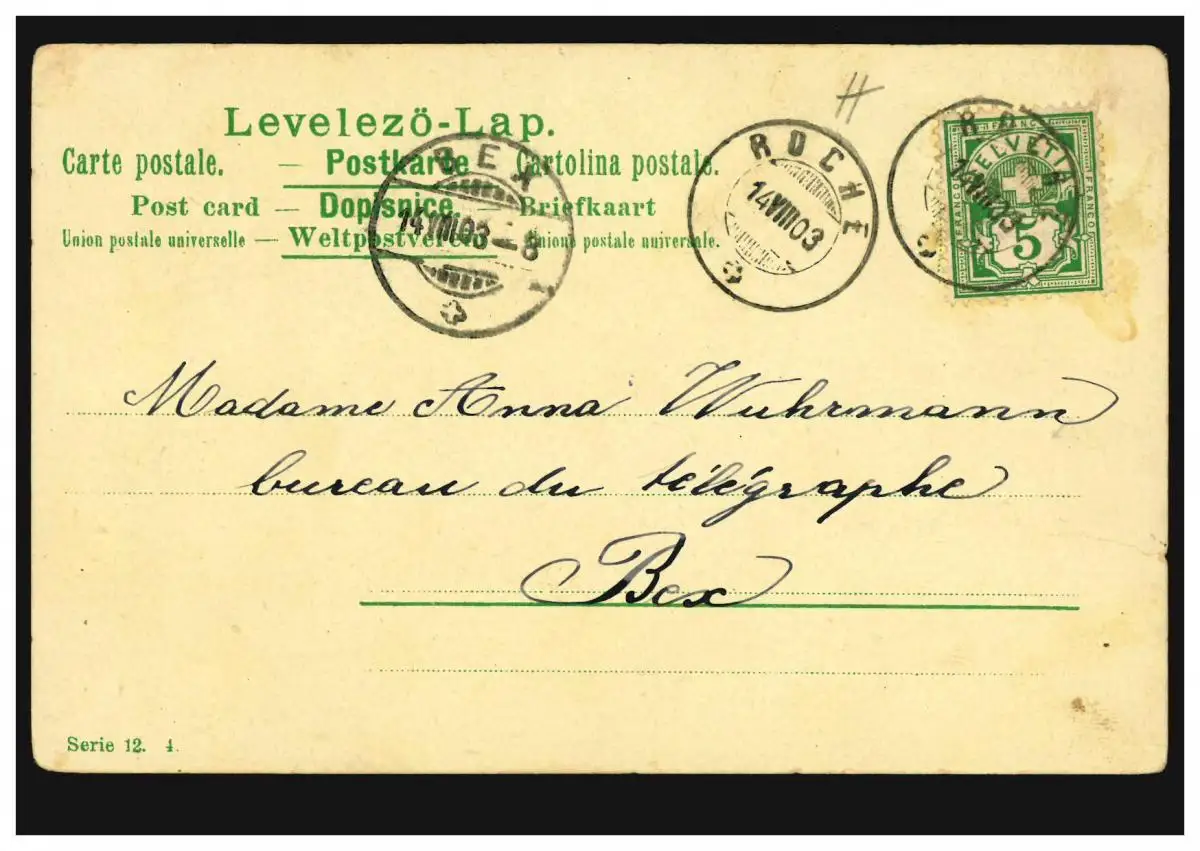 Levelezö-Lap.
Carte postale. — Postkarte — Cartolina postale.
Post card — Dopisnice — Briefkaart
Union postale universelle — Weltpostverein — Unione postale universale.
BEX
14 VIII 03 – 8
ROCHE
14 VIII 03
ROCHE
HELVETIA
FRANCO
5
Madame Anna Wuhrmann
bureau du télégraphe
Bex
Serie 12. 4.